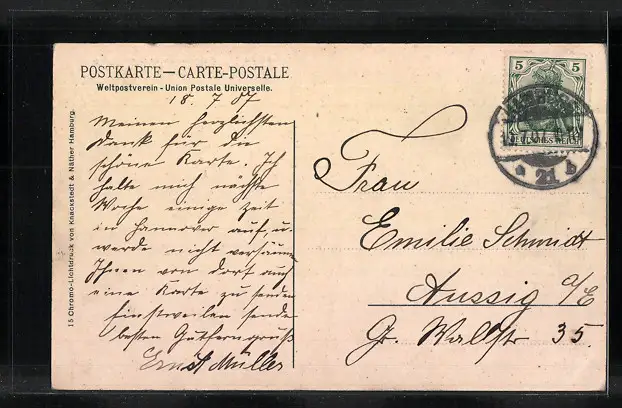 POSTKARTE — CARTE-POSTALE
Weltpostverein - Union Postale Universelle.
18. 7 07
Meinen herzlichsten
Dank für die
schöne Karte. Ich
halte mich nächste
Woche einige Zeit
in Hannover auf, u.
werde nicht versäum
Ihnen von dort auch
eine Karte zu senden
Einstweilen sende
besten Gutherngruß
Ernst Müller
15 Chromo-Lichtdruck von Knackstedt & Näther Hamburg.
5 5
DEUTSCHES REICH
21 b
Frau
Emilie Schmidt
Aussig a/E
Gr. Wallstr 35.